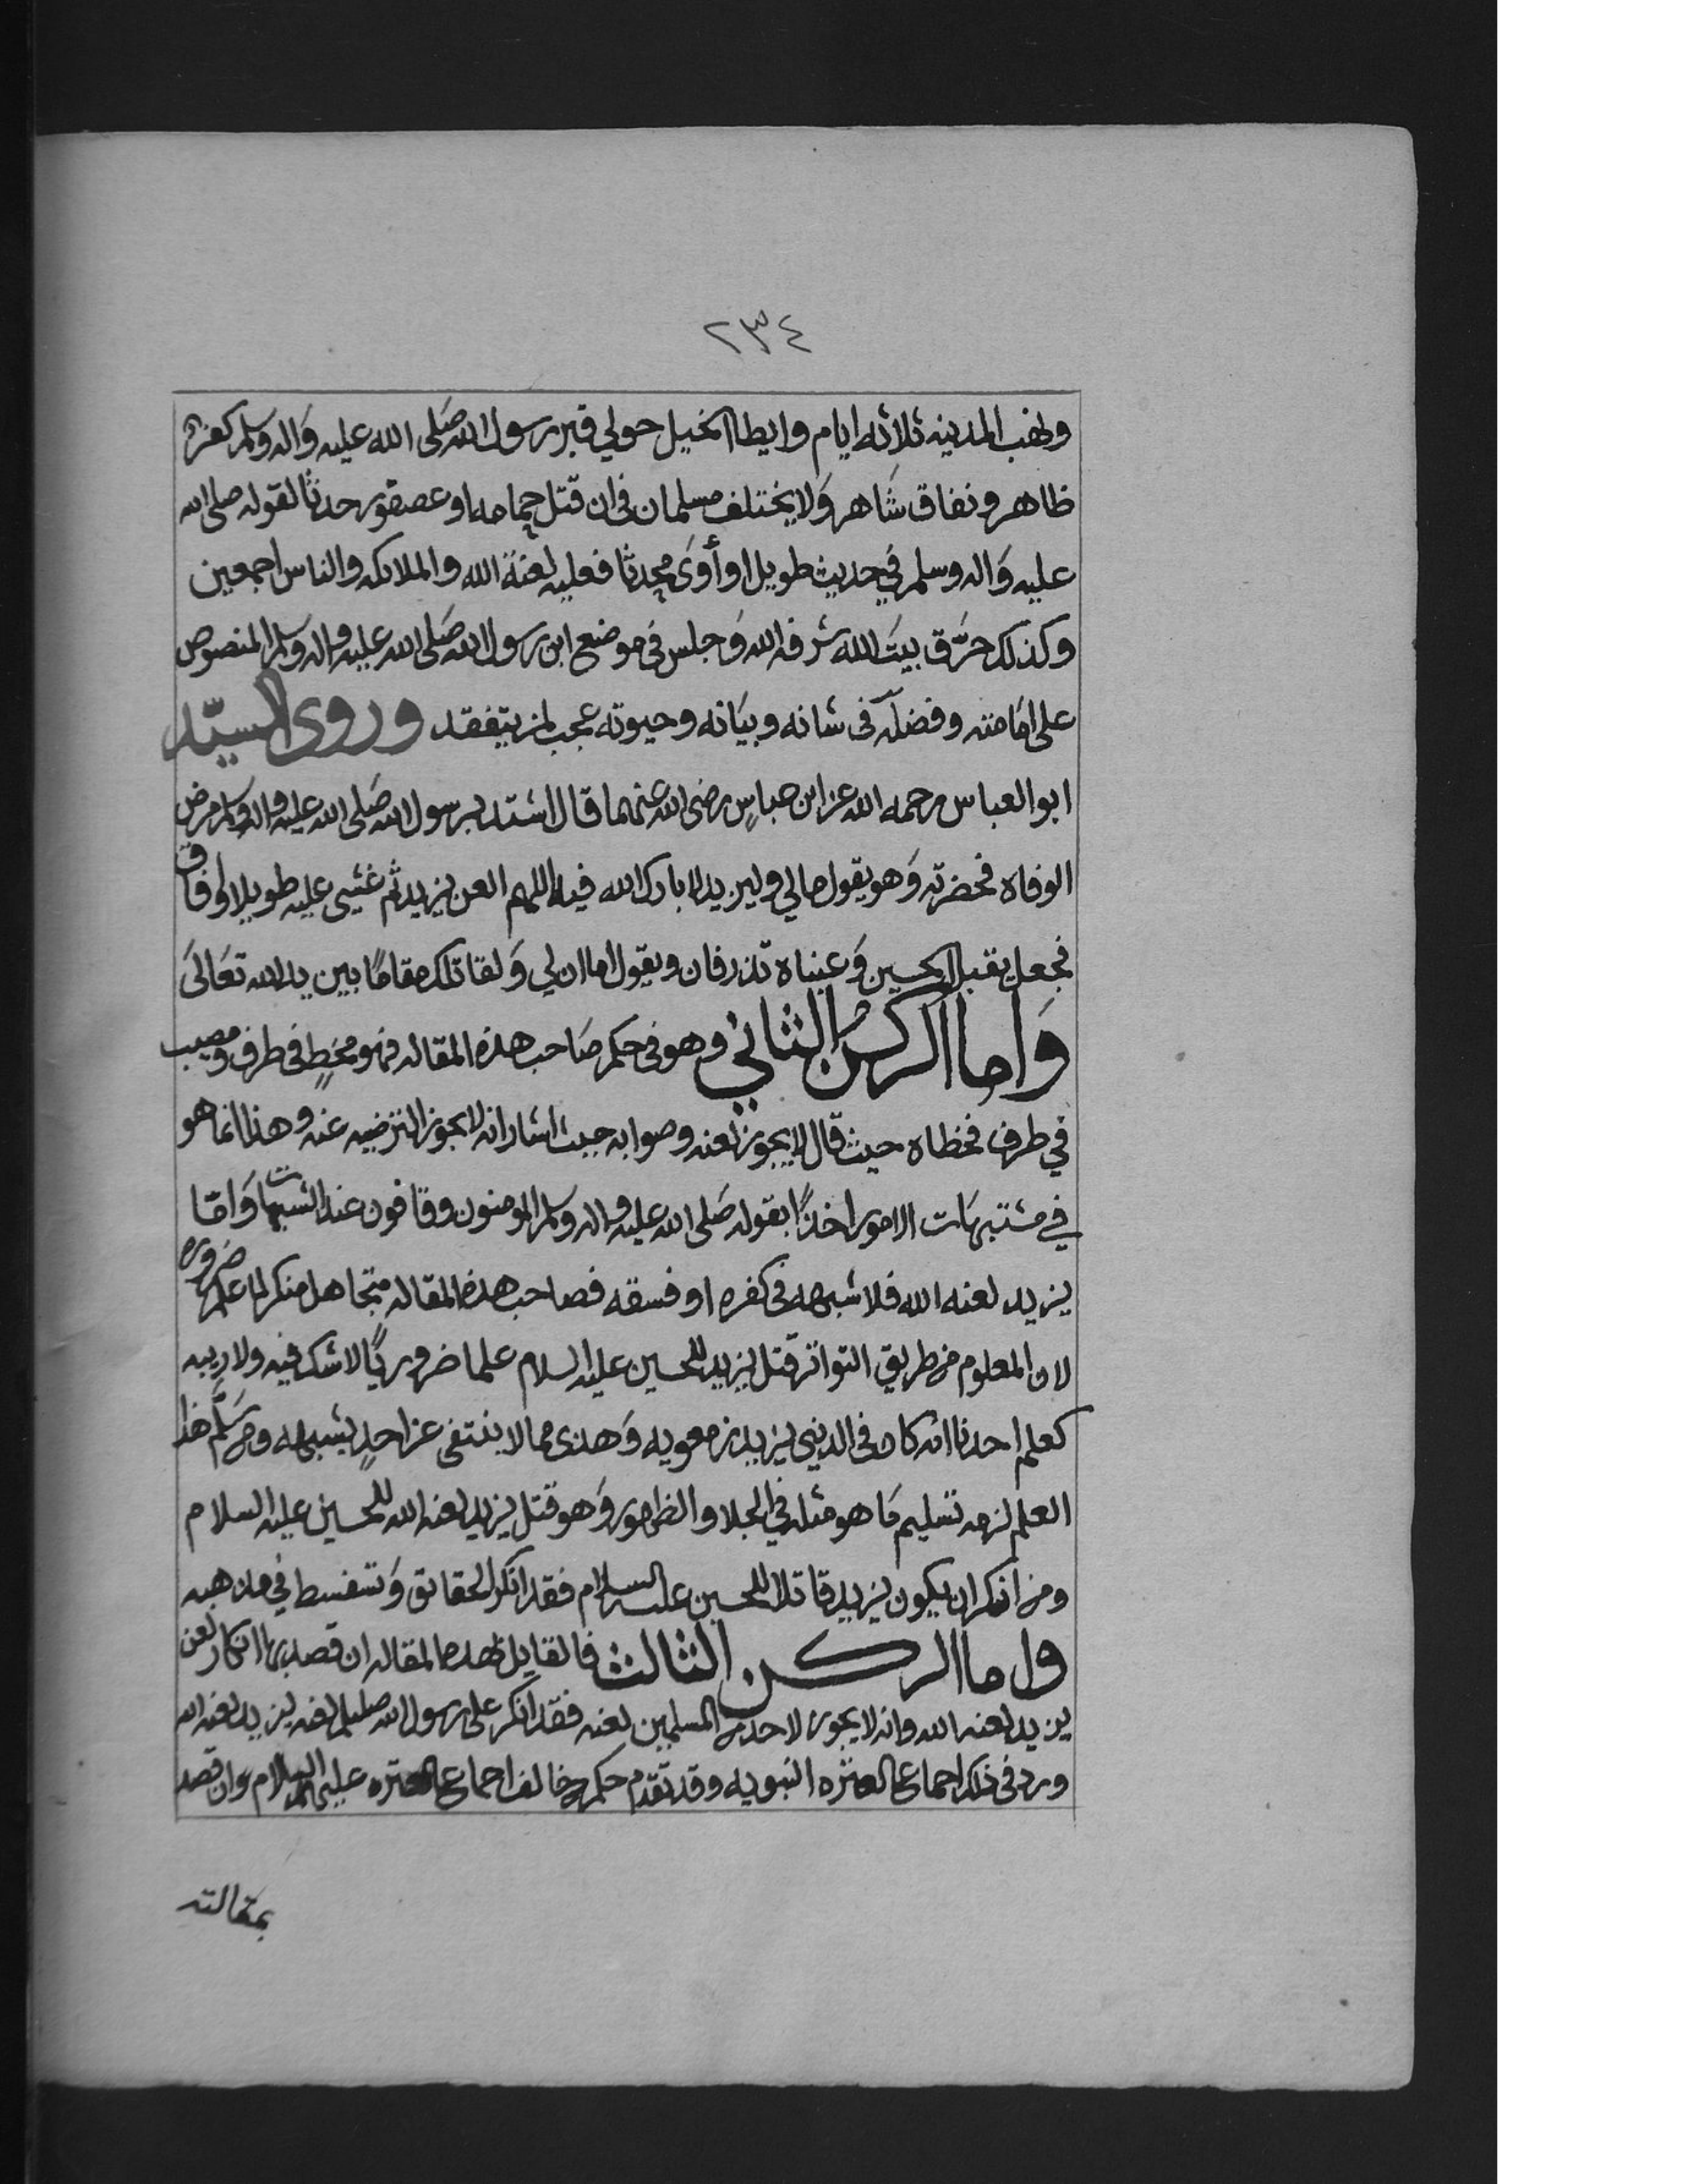 ٢٣٤
ونهب المدينه ثلاثه ايام وايطا الخيل حولي قبر رسول الله صَلى الله عليه وَاله وسلم كفره
ظاهر ونفاق شَاهر وَلا يختلف مسلمان في ان قتل حدثا لقوله صلى الله
عليه وَاله وسلم في حديث طويل او أوَى محدثا فعليه لعنة الله والملائكه والناس اجمعين
وكذلك حرَّق بيتَ الله شرفه الله وَجلس في موضع ابن رسول الله صَلى الله عليه واله وسلم المنصوص
على امَامته وفضله في شانه وبيَانه وحيوته عجب لمن يتفقد وروى السيّد
ابو العباس رحمه الله عن ابن عباسٍ رضي الله عنهما قال اشتد برسول الله صَلى الله عليه واله وسلم مرض
الوفاه فحضرته وَهو يقول مالي وليزيد لا بارك الله فيه اللهم العن يزيد ثم غشي عليه طويلا وافاق
فجعل يقبل الحسين وَعيناه تذرفان ويقول اما ان لي وَلقاتلك مقامًا بين يدي الله تعَالىَ
وَاما الركن الثاني وهو في حكم صَاحب هذه المقاله فهو مخطٍ في طرف ومصيب
في طرف فخطاه حيث قال لا يجوز لعنه وصوابه حيث اشار انه لا يجوز الترضيه عنه وهذا انما هو
في مشتبهَات الامور اخذًا بقوله صَلى الله عليه واله وسلم المومنون وقافون عند الشبهات وَامّا
يزيد لعنه الله فلا شبهه في كفره او فسقه فصاحب هذه المقاله متجاهل منكر لما علم ضروره
لان المعلوم من طريق التواتر قتل يزيد للحسين عليه السلام علما ضروريًا لا شك فيه ولا ريبه
كعلم احدنا انه كان في الدنيي يزيد بن معويه وَهذي مما لا ينتفى عن احدٍ بشبهه ومن سَلَّم هذا
العلم لزمه تسليم مَا هو مثله في الجلا والظهور وَهو قتل يزيد لعنه الله للحسين عليه السلام
ومن انكر ان يكون يزيد قاتلا للحسين عليه السلام فقد انكر الحقائق وَتسفسط في مذهبه
واما الركن الثالث فالقايل بهذه المقاله ان قصد بها انكار لعن
يزيد لعنه الله وانه لا يجوز لاحد من المسلمين لعنه فقد انكر على رسول الله صلعلم لعنه يزيد لعنه الله
ورد في ذلك اجماع العتره النبويه وقد تقدم حكم من خالف اجماع العتره عليهم السلام وان قصد
بمقالته